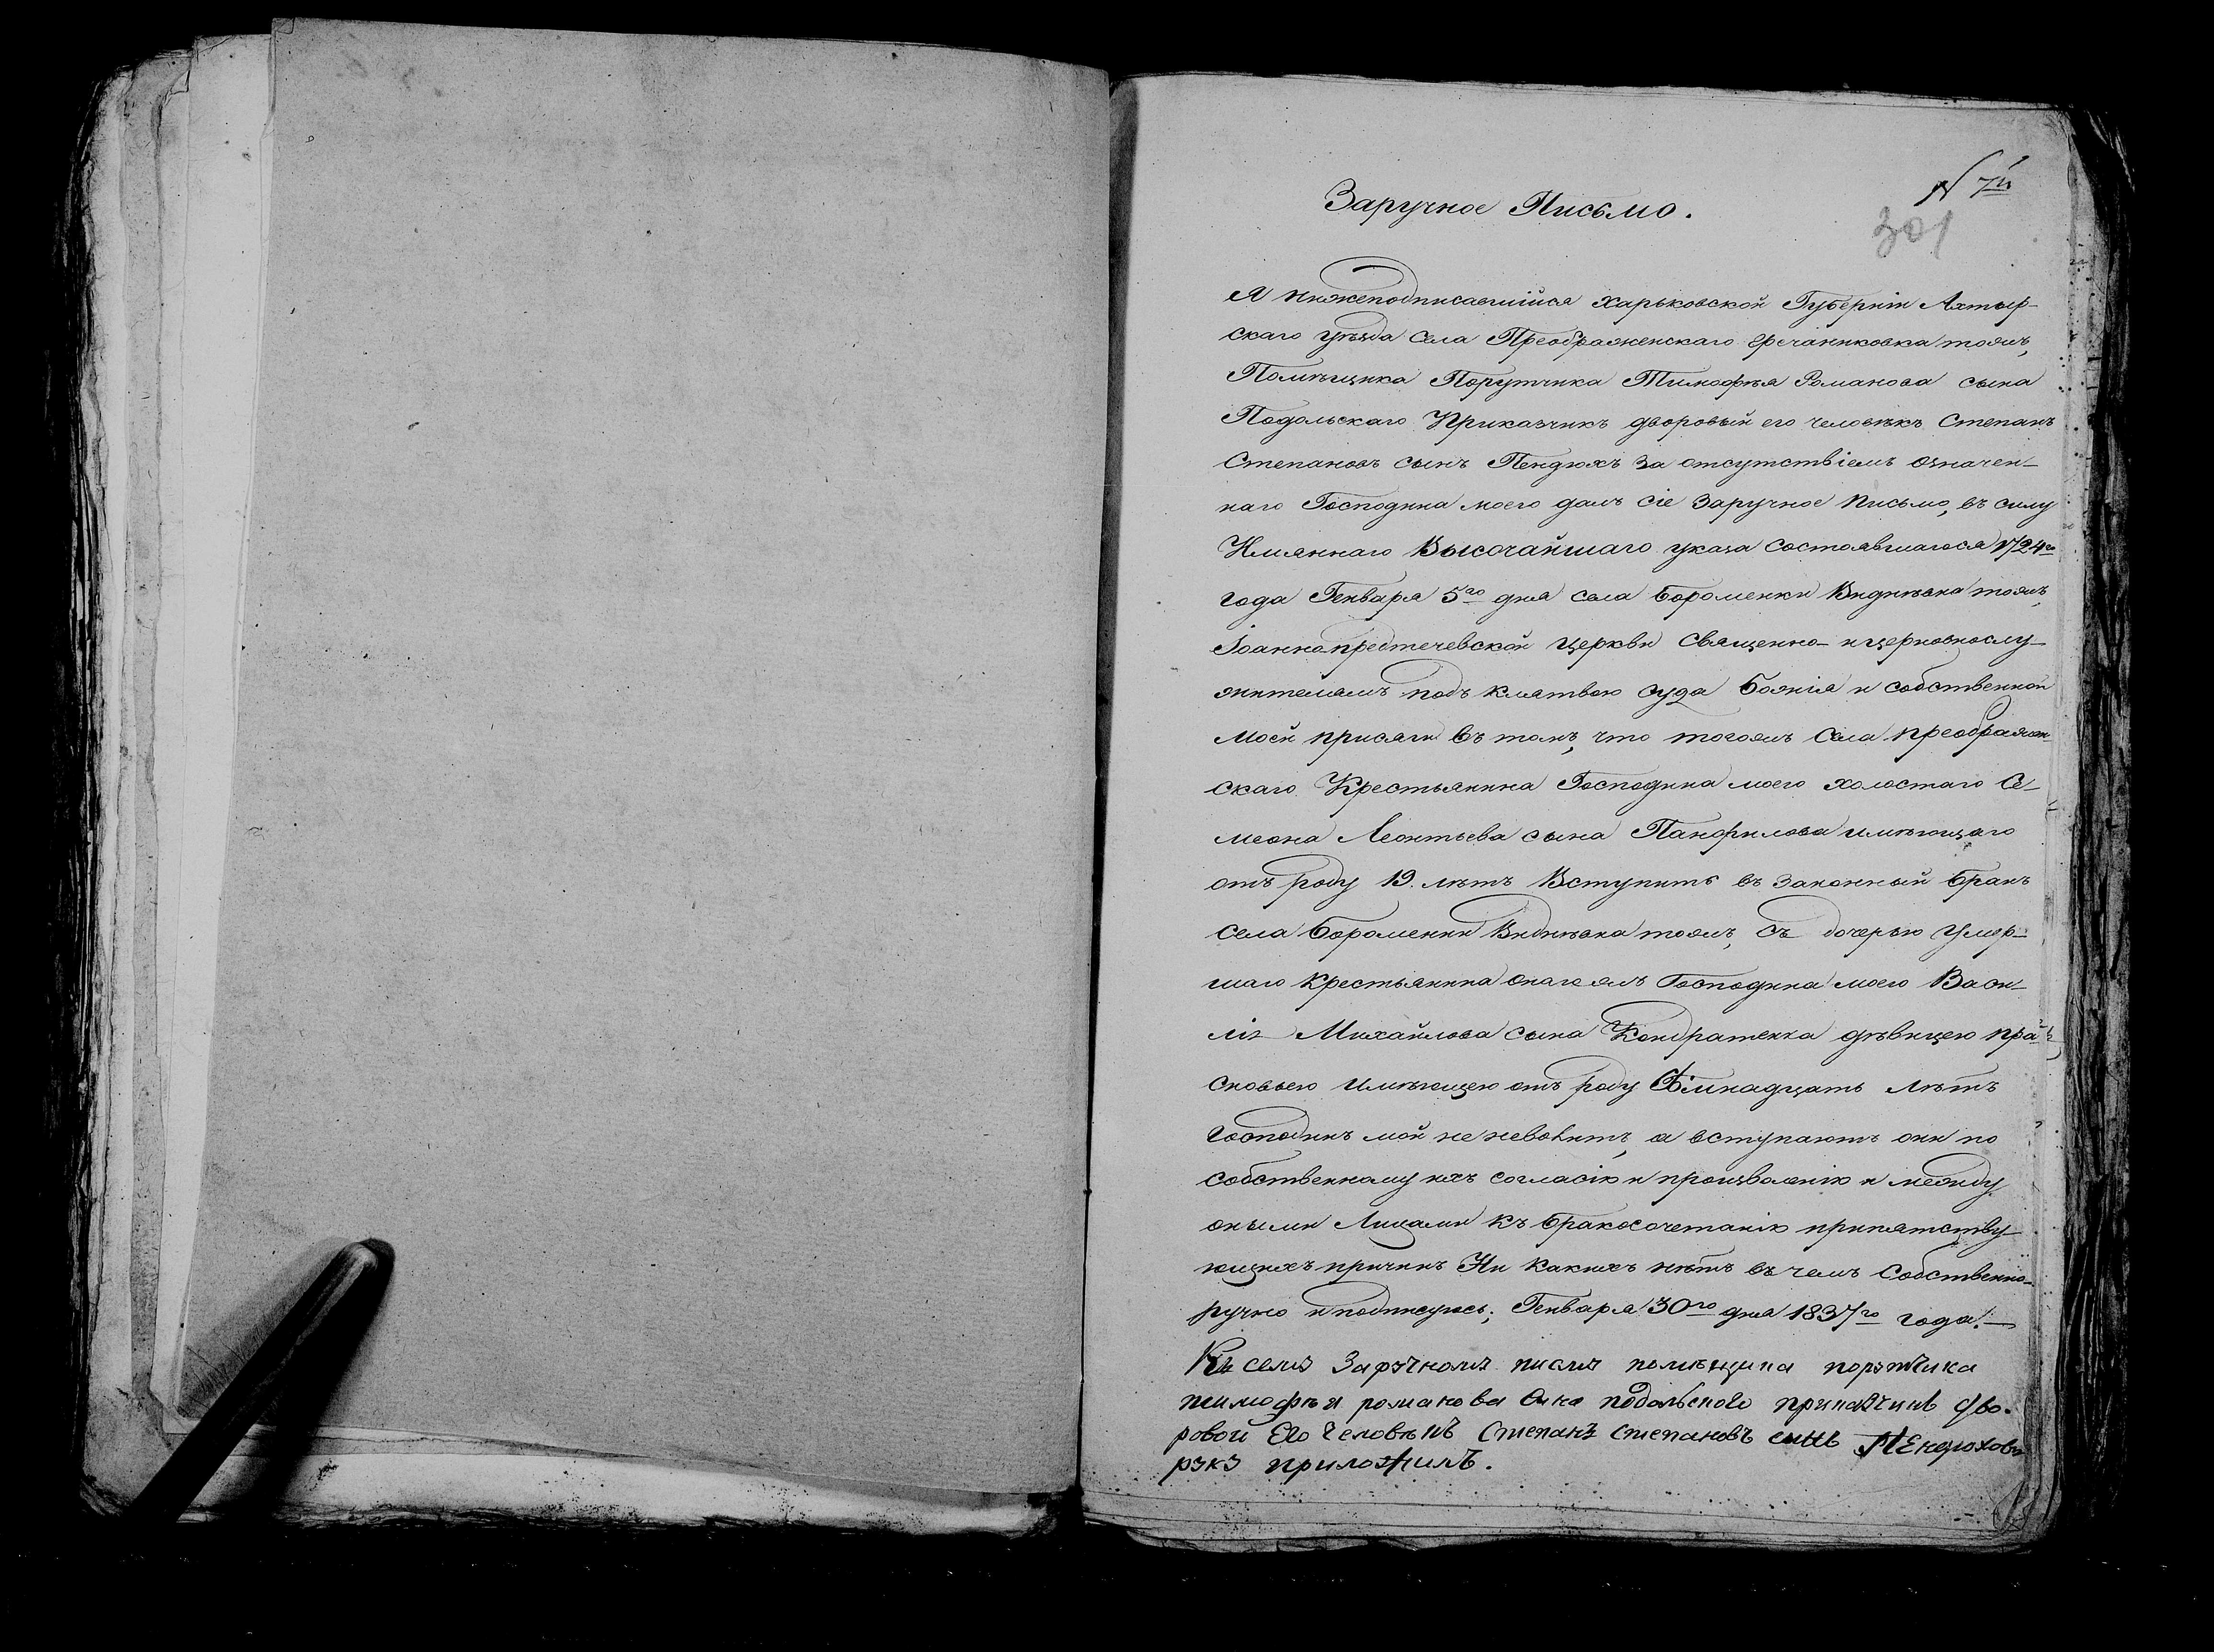 N 7й
301
Заручное Письмо.
Я нижеподписавшійся Харьковской Губерніи Ахтыр-
скаго уѣзда села Преображенскаго Гречаниковка тожъ,
Помѣщика Порутчика Тимофѣя Романова сына
Подольскаго Приказчикъ дворовый его человѣкъ Степанъ
Степановъ сынъ Пендюхъ за отсутствіемъ означен-
наго Господина моего далъ сіе заручное письмо, въ силу
Имяннаго Высочайшаго указа состоявшагося 1724го
года Генваря 5го дня села Бороменки Виднѣвка тожъ,
Іоаннопредтечевской церкви священно- и церковнослу-
жителямъ подъ клятвою суда Божія и собственной
моей присяги въ томъ, что тогожъ села преображен-
скаго Крестьянина Господина моего холостаго Се-
меона Леонтьева сына Панфилова имѣющаго
отъ роду 19. лѣтъ Вступить въ законный бракъ
села Бороменки Виднѣвка тожъ, съ дочерью умер-
шаго крестьянина онагожъ Господина моего Васи-
лія Михайлова сына Кондратенка дѣвицею пра-
сковьею имѣющею отъ роду Сѣмнадцать лѣтъ
Господинъ мой не неволитъ, а вступаютъ они по
собственному ихъ согласію и произволенію и между
оными Лицами къ бракосочетанію припятству-
ющихъ причинъ Ни какихъ нѣтъ въ чемъ Собственно-
ручно и подписуюсь; Генваря 30го дня 1837го года.
Къ семȣ Зарȣчномȣ писмȣ помѣщика порȣтчика
тимофѣя романова сина подольского приказчикъ дво-
ровой Его Человѣкъ Степанъ Степановъ синъ Пендюховъ
рȣкȣ приложилъ.